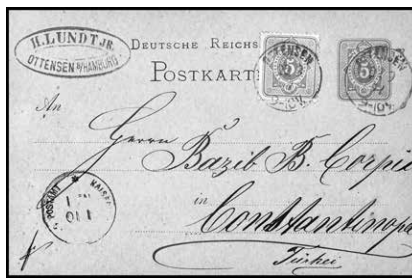 H. LUNDT JR.
OTTENSEN B/HAMBURG
DEUTSCHE REICHS
POSTKART
OTTENSEN
5
9-10V.
OTTENSEN
5
9-10V.
An
Herrn Bazib B. Corpi
in
Constantinop
Türkei
POSTAMT * KAISERL
1 10